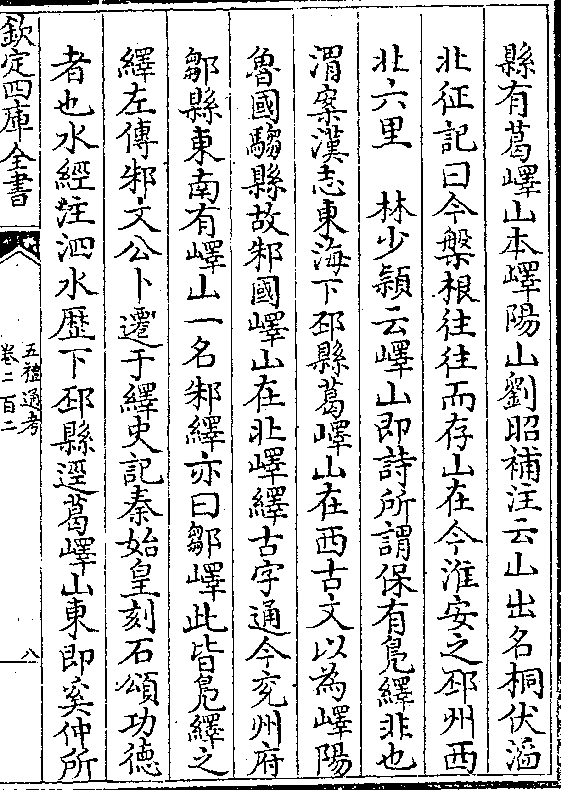 縣有葛嶧山本嶧陽山劉昭補注云山出名桐伏滔
北征記曰今槃根往往而存山在今淮安之邳州西
北六里　林少穎云嶧山即詩所謂保有鳧繹非也
渭案漢志東海下邳縣葛嶧山在西古文以為嶧陽
魯國騶縣故邾國嶧山在北嶧繹古字通今兖州府
鄒縣東南有嶧山一名邾繹亦曰鄒嶧此皆鳧繹之
繹左傳邾文公卜遷于繹史記秦始皇刻石頌功德
者也水經注泗水歴下邳縣逕葛嶧山東即奚仲所
欽定四庫全書
五禮通考
卷二百二
八